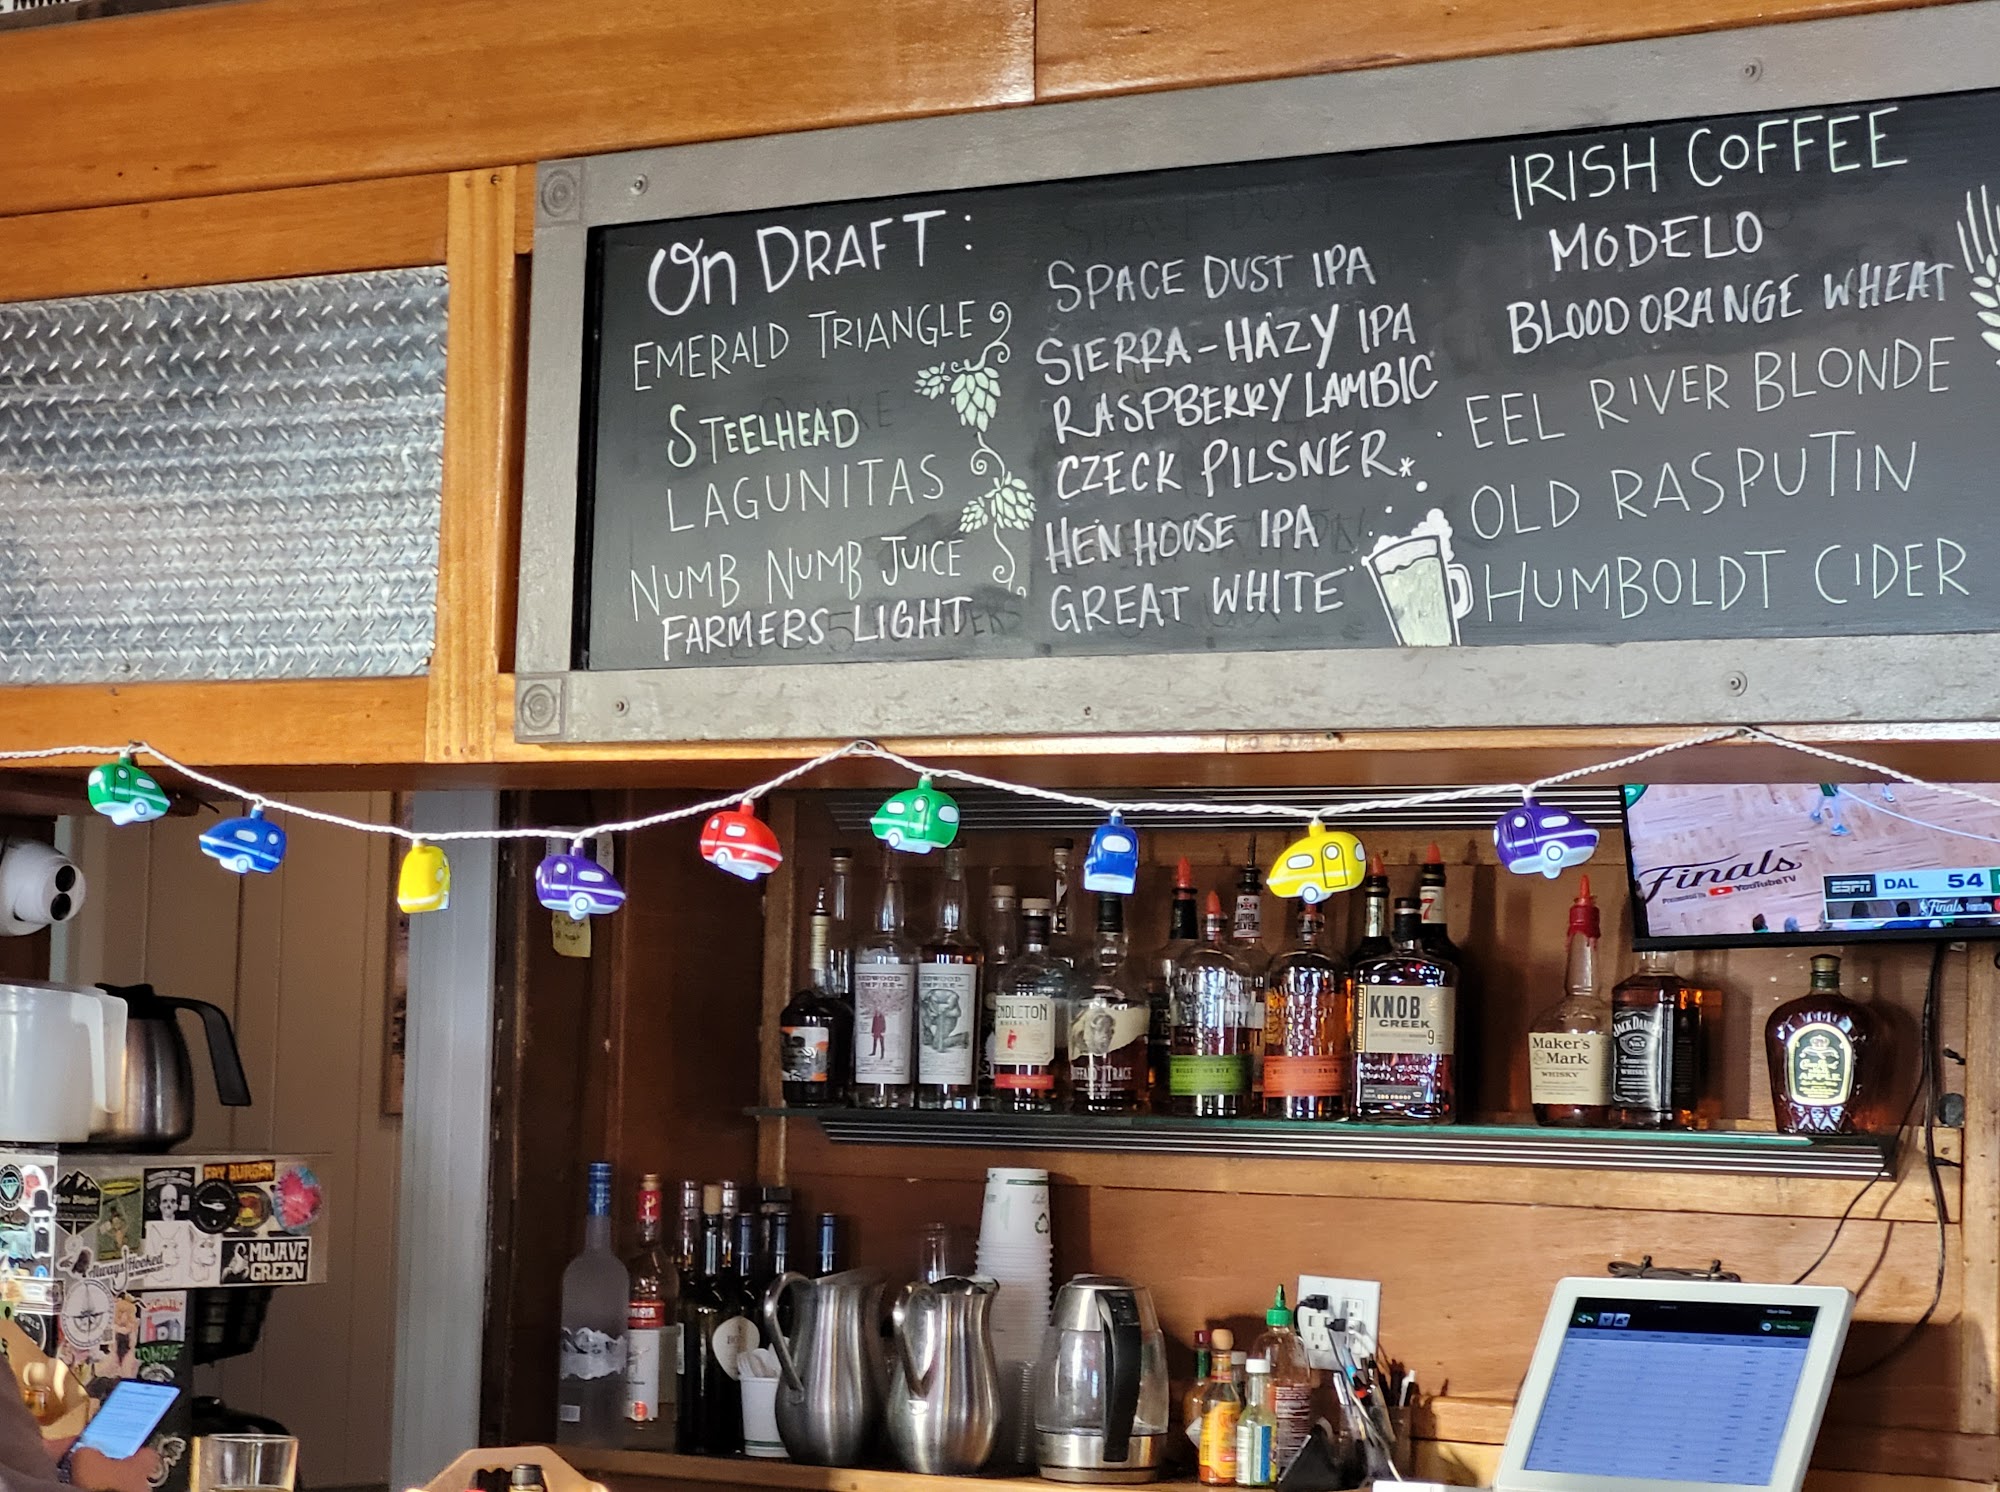 On DRAFT:
EMERALD TRIANGLE
STEELHEAD
LAGUNITAS
NUMB NUMB JUICE
FARMERS LIGHT
SPACE DUST IPA
SIERRA-HAZY IPA
RASPBERRY LAMBIC
CZECK PILSNER*
HEN HOUSE IPA
GREAT WHITE
IRISH COFFEE
MODELO
BLOOD ORANGE WHEAT
EEL RIVER BLONDE
OLD RASPUTIN
HUMBOLDT CIDER
Finals
YouTubeTV
ESPN DAL 54
Finals
REDWOOD
EMPIRE
EMPIRE
PENDLETON
WHISKY
BUFFALO TRACE
BOURBON
KNOB
CREEK
9
7
Maker's
Mark
WHISKY
JACK DANIEL'S
MOJAVE
GREEN
Always Hooked